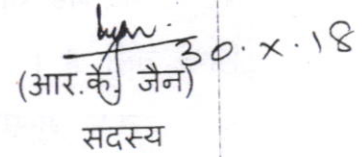 30.x.18
(आर.के. जैन)
सदस्य